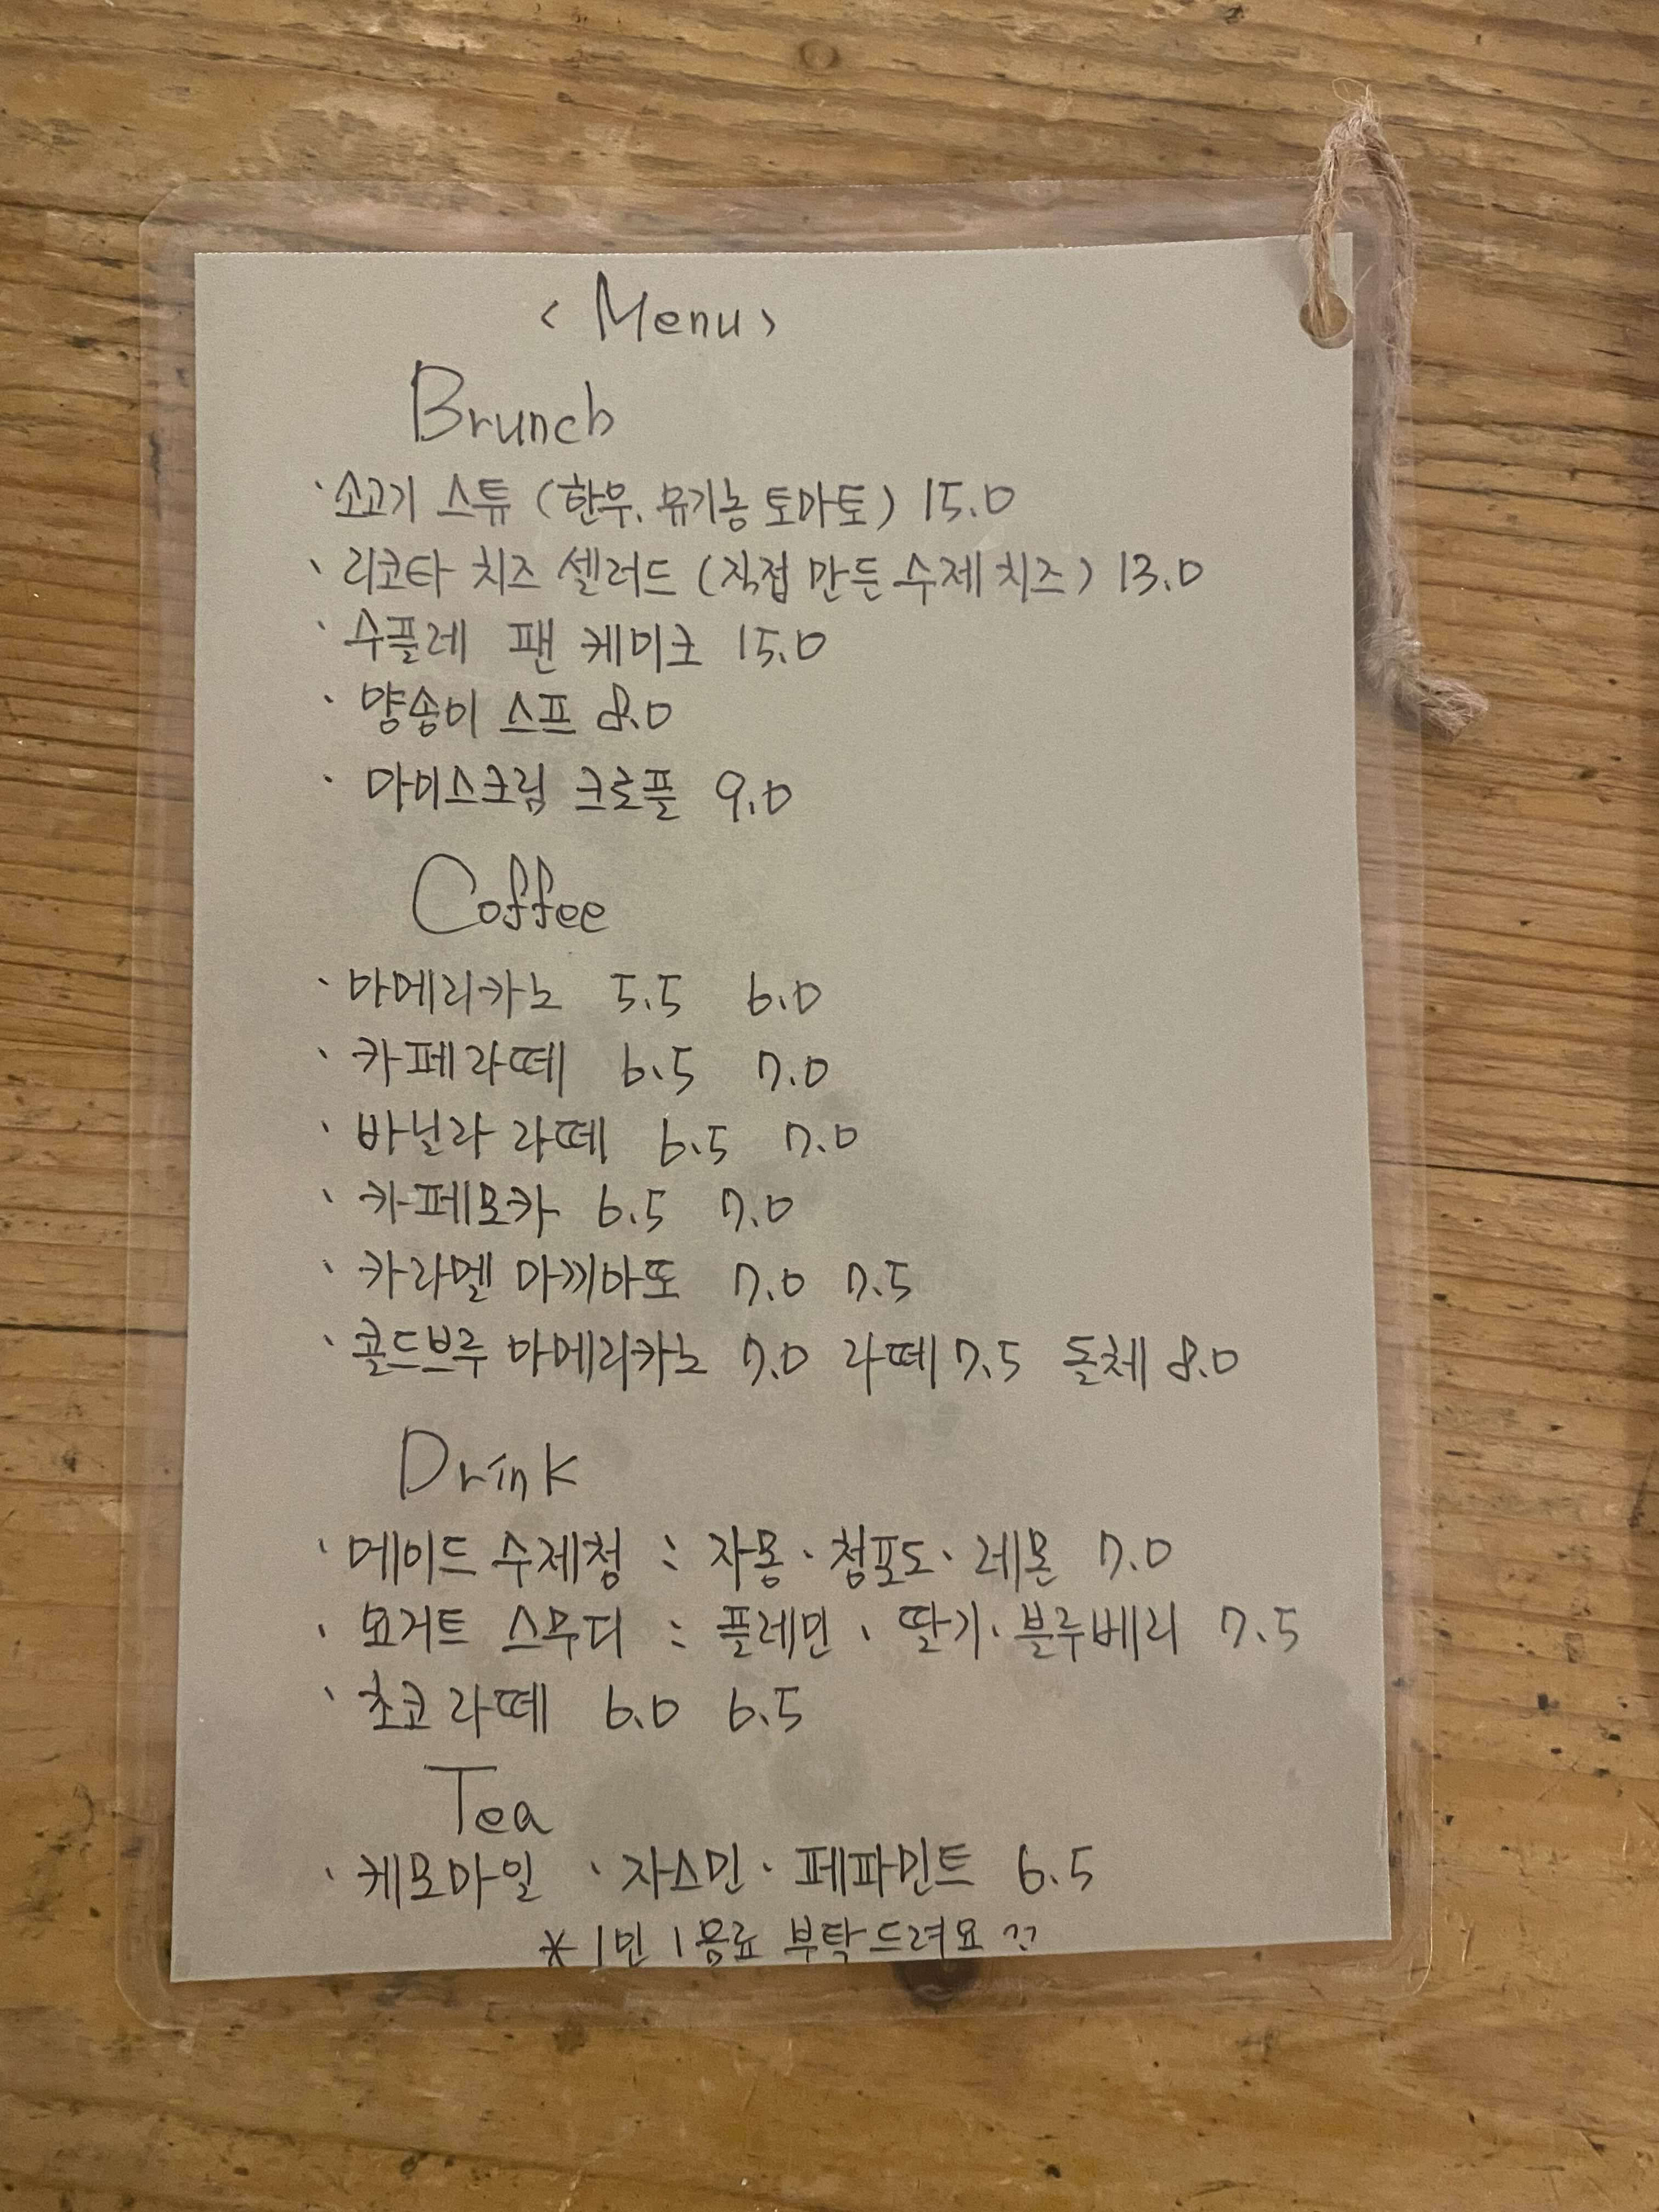 < Menu >
Brunch
· 소고기 스튜 (한우, 유기농 토마토) 15.0
· 리코타 치즈 셀러드 (직접 만든 수제 치즈) 13.0
· 수플레 팬 케이크 15.0
· 양송이 스프 8.0
· 아이스크림 크로플 9.0
Coffee
· 아메리카노 5.5 6.0
· 카페라떼 6.5 7.0
· 바닐라 라떼 6.5 7.0
· 카페모카 6.5 7.0
· 카라멜 마끼아또 7.0 7.5
· 콜드브루 아메리카노 7.0 라떼 7.5 돌체 8.0
Drink
· 에이드 수제청 : 자몽 · 청포도 · 레몬 7.0
· 요거트 스무디 : 플레인 · 딸기 · 블루베리 7.5
· 초코라떼 6.0 6.5
Tea
· 케모마일 · 자스민 · 페파민트 6.5
* 1인 1음료 부탁드려요 ^^